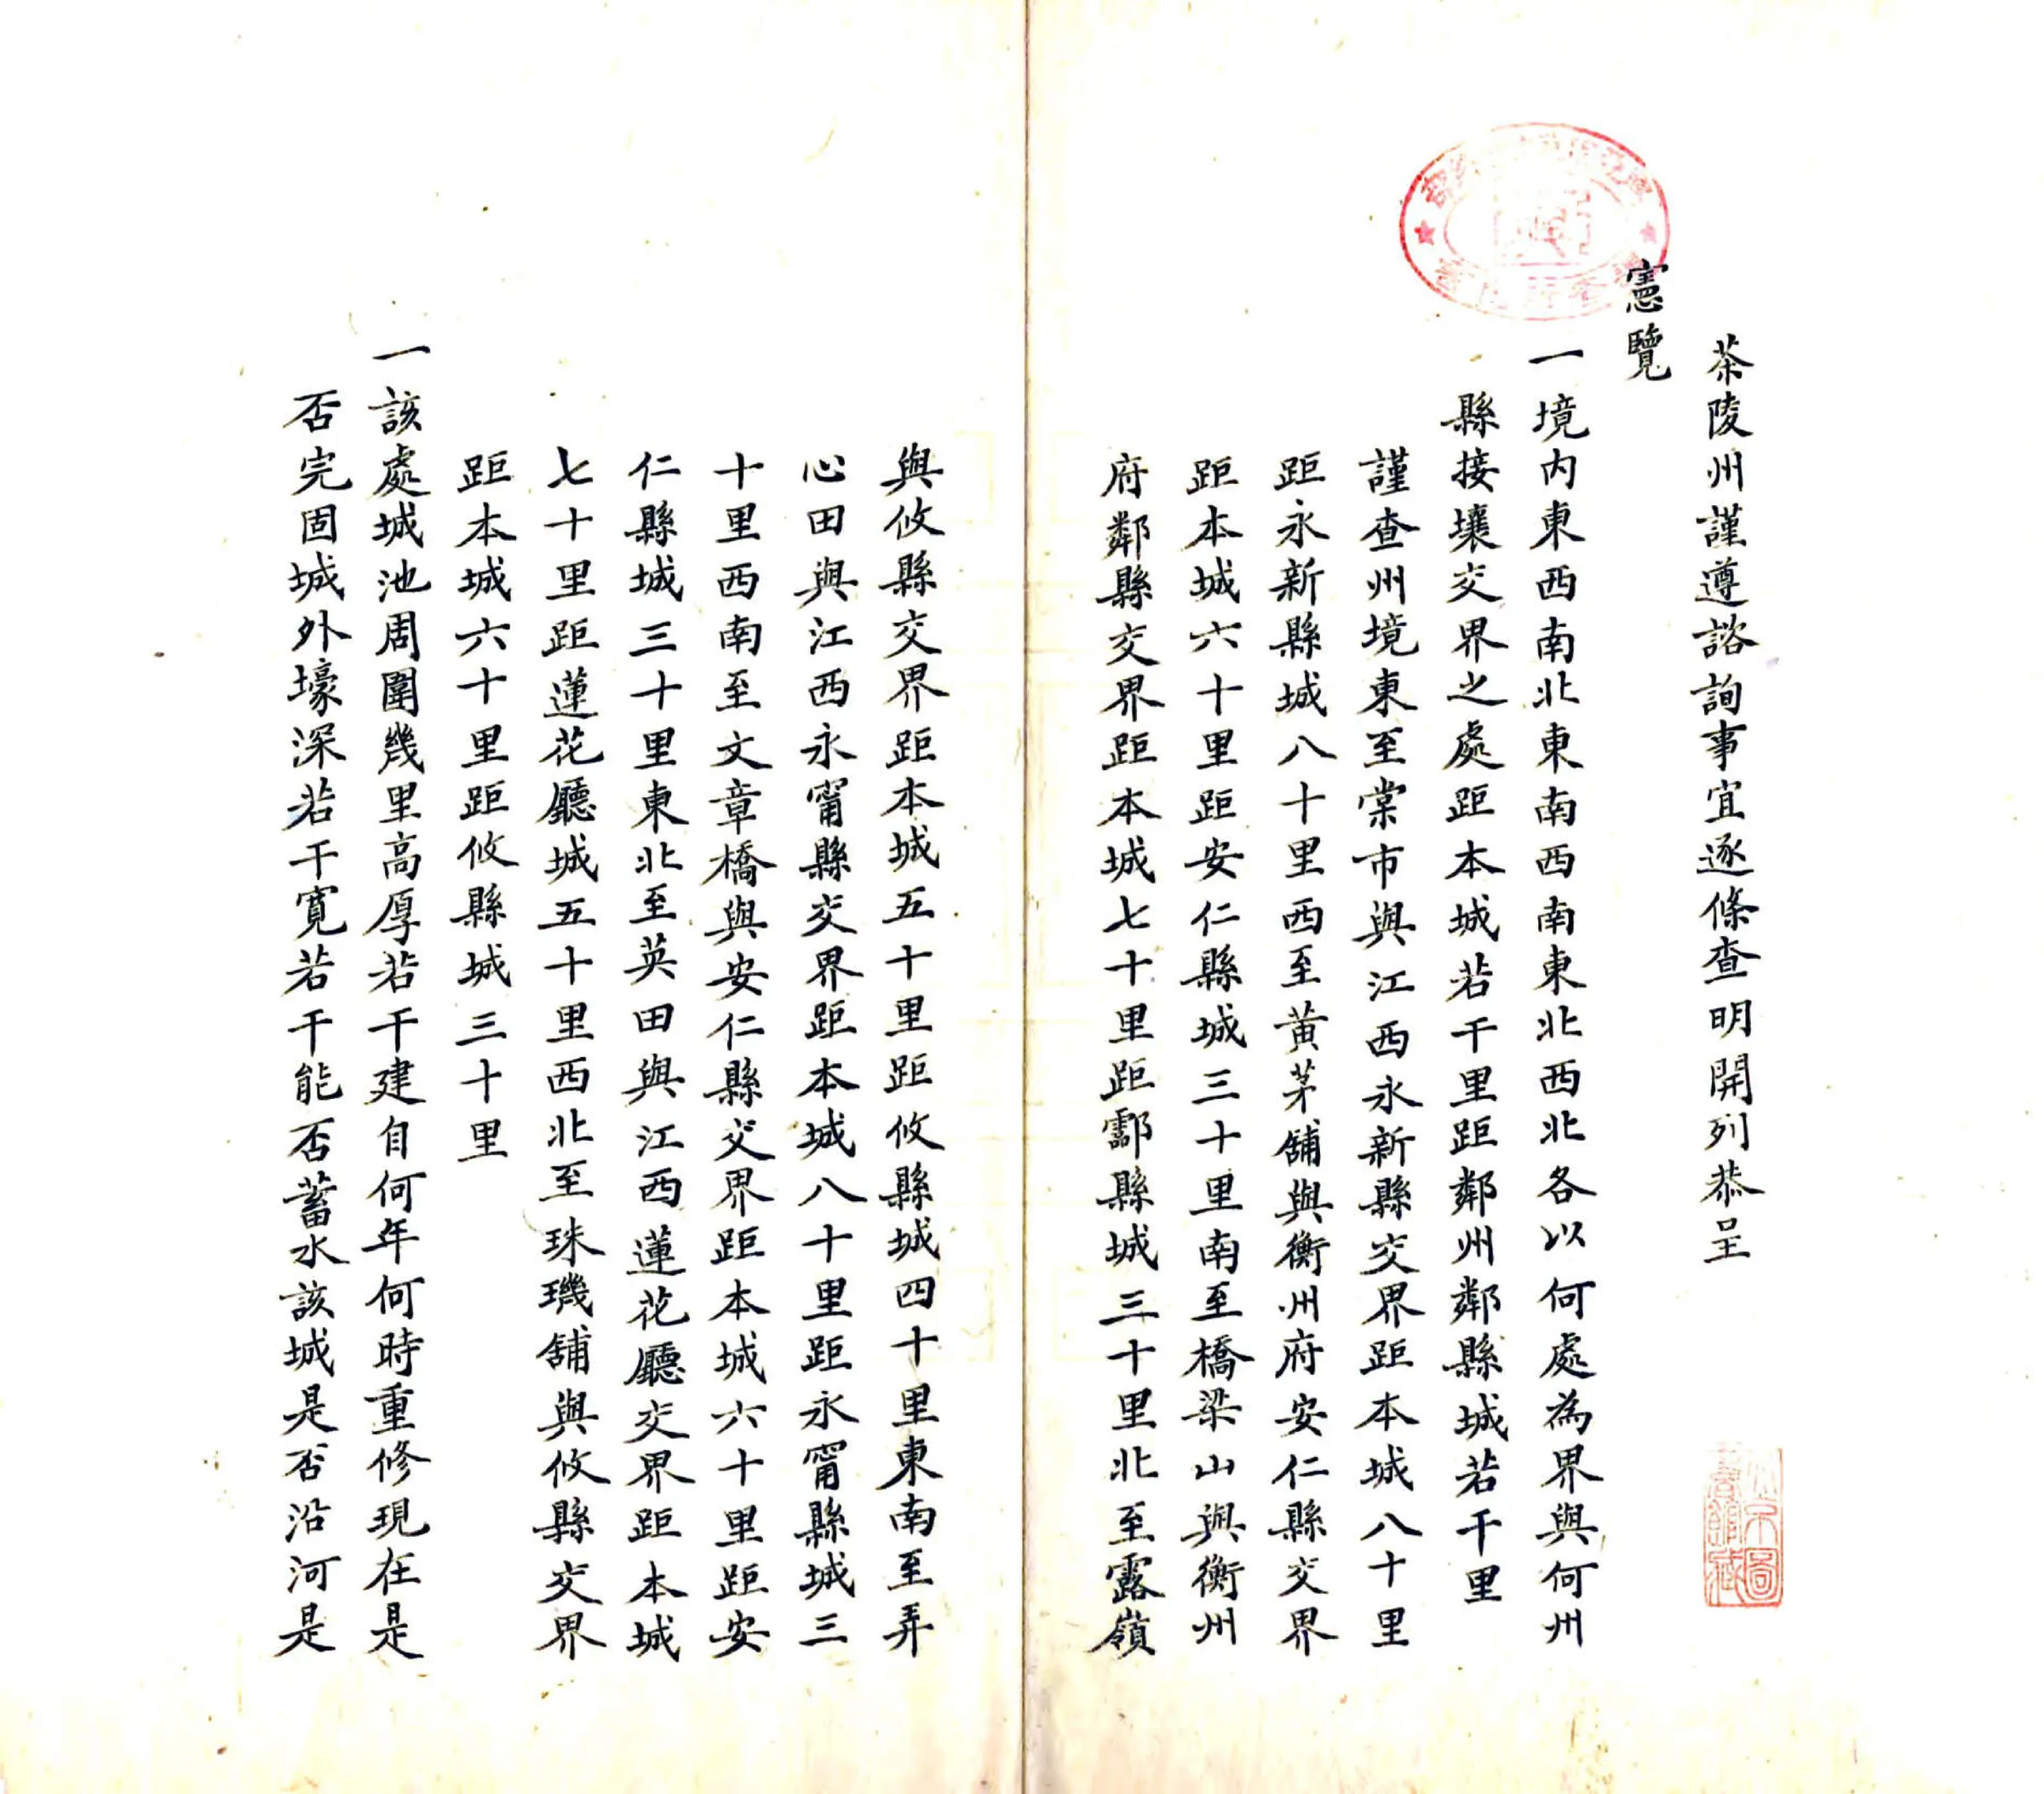 茶陵州謹遵諮詢事宜逐條查明開列恭呈
憲覽
一境內東西南北東南西南東北西北各以何處為界與何州
縣接壤交界之處距本城若干里距鄰州鄰縣城若干里
謹查州境東至棠市與江西永新縣交界距本城八十里
距永新縣城八十里西至黃茅舖與衡州府安仁縣交界
距本城六十里距安仁縣城三十里南至橋梁山與衡州
府鄰縣交界距本城七十里距酃縣城三十里北至露嶺
與攸縣交界距本城五十里距攸縣城四十里東南至弄
心田與江西永甯縣交界距本城八十里距永甯縣城三
十里西南至文章橋與安仁縣交界距本城六十里距安
仁縣城三十里東北至英田與江西蓮花廳交界距本城
七十里距蓮花廳城五十里西北至珠璣舖與攸縣交界
距本城六十里距攸縣城三十里
一該處城池周圍幾里高厚若干建自何年何時重修現在是
否完固城外壕深若干寬若干能否蓄水該城是否沿河是